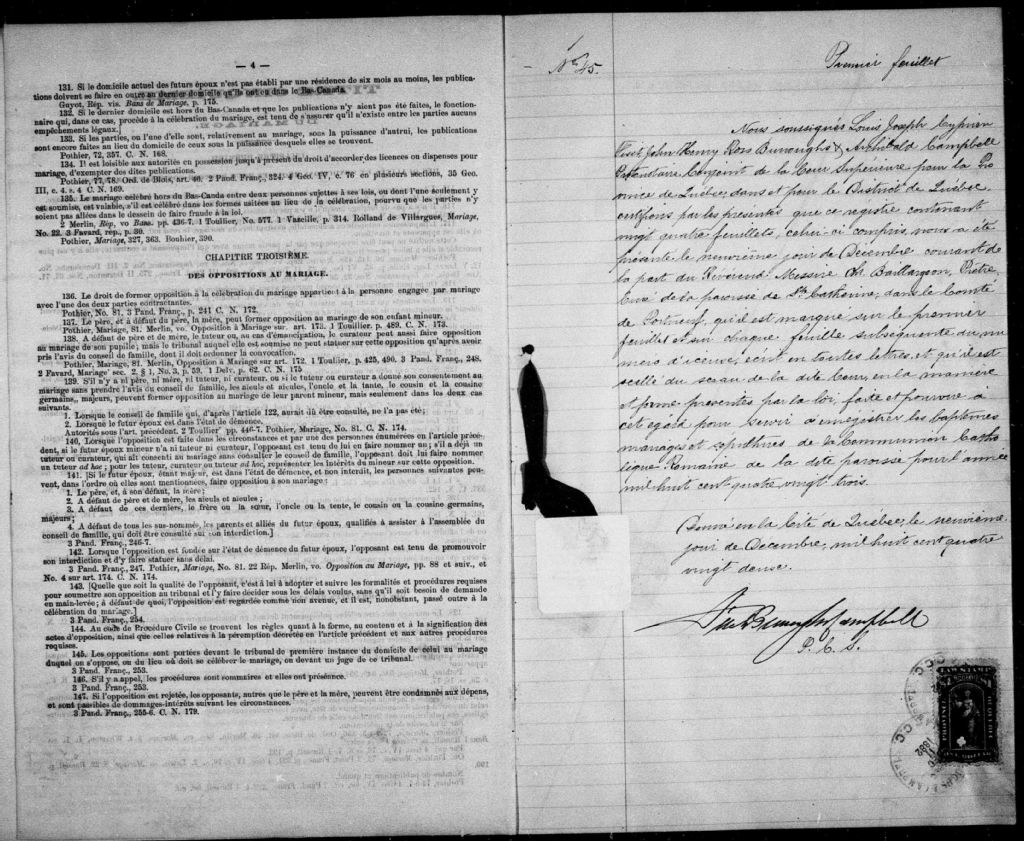 — 4 —
131. Si le domicile actuel des futurs époux n'est pas établi par une résidence de six mois au moins, les publica-
tions doivent se faire en outre au dernier domicile qu'ils ont eu dans le Bas-Canada.
Guyot, Rép. vis. Bans de Mariage, p. 175.
132. Si le dernier domicile est hors du Bas-Canada et que les publications n'y aient pas été faites, le fonction-
naire qui, dans ce cas, procède à la célébration du mariage, est tenu de s'assurer qu'il n'existe entre les parties aucuns
empêchements légaux.]
133. Si les parties, ou l'une d'elles sont, relativement au mariage, sous la puissance d'autrui, les publications
sont encore faites au lieu du domicile de ceux sous la puissance desquels elles se trouvent.
Pothier, 72, 357. C. N. 168.
134. Il est loisible aux autorités en possession jusqu'à présent du droit d'accorder des licences ou dispenses pour
mariage, d'exempter des dites publications.
Pothier, 77, 78. Ord. de Blois, art. 40. 2 Pand. Franç., 324. 4 Geo. IV, c. 76 en plusieurs sections, 35 Geo.
III, c. 4. s. 4 C. N. 169.
135. Le mariage célébré hors du Bas-Canada entre deux personnes sujettes à ses lois, ou dont l'une seulement y
est soumise, est valable, s'il est célébré dans les formes usitées au lieu de la célébration, pourvu que les parties n'y
soient pas allées dans le dessein de faire fraude à la loi.
2 Merlin, Rép, vo Bans. pp. 436-7. 1 Toullier, No. 577. 1 Vazeille, p. 314. Rolland de Villargues, Mariage,
No. 22. 3 Favard, rep., p. 30.
Pothier, Mariage, 327, 363. Bouhier, 390.
CHAPITRE TROISIÈME.
DES OPPOSITIONS AU MARIAGE.
136. Le droit de former opposition à la célébration du mariage appartient à la personne engagée par mariage
avec l'une des deux parties contractantes.
Pothier, No. 81. 3 Pand. Franç., p. 241 C. N. 172.
137. Le père, et à défaut du père, la mère, peut former opposition au mariage de son enfant mineur.
Pothier, Mariage, 81. Merlin, vo. Opposition à Mariage sur art. 173. 1 Touillier, p. 489. C. N. 173.
138. A défaut de père et de mère, le tuteur ou, au cas d'émancipation, le curateur peut aussi faire opposition
au mariage de son pupille; mais le tribunal auquel elle est soumise ne peut statuer sur cette opposition qu'après avoir
pris l'avis du conseil de famille, dont il doit ordonner la convocation.
Pothier, Mariage, 81. Merlin, Opposition à Mariage sur art. 172. 1 Toullier, p. 425, 490. 3 Pand. Franç., 248.
2 Favard, Mariage' sec. 2, § 1, No. 3, p. 59. 1 Delv. p. 62. C. N. 175
139. S'il n'y a ni père, ni mère, ni tuteur, ni curateur, ou si le tuteur ou curateur a donné son consentement au
mariage sans prendre l'avis du conseil de famille, les aïeuls et aïeules, l'oncle et la tante, le cousin et la cousine
germains,, majeurs, peuvent former opposition au mariage de leur parent mineur, mais seulement dans les deux cas
suivants.
1. Lorsque le conseil de famille qui, d'après l'article 122, aurait dû être consulté, ne l'a pas été;
2. Lorsque le futur époux est dans l'état de démence.
Autorités sous l'art. précédent. 2 Toullier pp. 446-7. Pothier, Mariage, No. 81. C. N. 174.
140. Lorsque l'opposition est faite dans les circonstances et par une des personnes énumérées en l'article précé-
dent, si le futur époux mineur n'a ni tuteur ni curateur, l'opposant est tenu de lui en faire nommer un; s'il a déjà un
tuteur ou curateur, qui ait consenti au mariage sans consulter le conseil de famille, l'opposant doit lui faire nommer
un tuteur ad hoc; pour les tuteur, curateur ou tuteur ad hoc, représenter les intérêts du mineur sur cette opposition.
141. [Si le futur époux, étant majeur, est dans l'état de démence, et non interdit, les personnes suivantes peu-
vent, dans l'ordre où elles sont mentionnées, faire opposition à son mariage:
1. Le père, et, à son défaut, la mère;
2. A défaut de père et de mère, les aïeuls et aïeules;
3. A défaut de ces derniers, le frère ou la sœur, l'oncle ou la tante, le cousin ou la cousine germains,
majeurs;
4. A défaut de tous les sus-nommés, les parents et alliés du futur époux, qualifiés à assister à l'assemblée du
conseil de famille, qui doit être consulté sur son interdiction.]
3 Pand. Franç., 246-7.
142. Lorsque l'opposition est fondée sur l'état de démence du futur époux, l'opposant est tenu de promouvoir
son interdiction et d'y faire statuer sans délai.
3 Pand. Franç., 247. Pothier, Mariage, No. 81. 22 Rép. Merlin, vo. Opposition au Mariage, pp. 88 et suiv., et
No. 4 sur art. 174. C. N. 174.
143. [Quelle que soit la qualité de l'opposant, c'est à lui à adopter et suivre les formalités et procédures requises
pour soumettre son opposition au tribunal et l'y faire décider sous les délais voulus, sans qu'il soit besoin de demande
en main-levée; à défaut de quoi, l'opposition est regardée comme non avenue, et il est, nonobstant, passé outre à la
célébration du mariage.]
3 Pand. Franç., 254.
144. Au code de Procédure Civile se trouvent les règles quant à la forme, au contenu et à la signification des
actes d'opposition, ainsi que celles relatives à la péremption décrétées en l'article précédent et aux autres procédures
requises.
145. Les oppositions sont portées devant le tribunal de première instance du domicile de celui au mariage
duquel on s'oppose, ou du lieu où doit se célébrer le mariage, ou devant un juge de ce tribunal.
3 Pand. Franç., 253.
146. S'il y a appel, les procédures sont sommaires et elles ont préséance.
3 Pand. Franç., 253.
147. Si l'opposition est rejetée, les opposants, autres que le père et la mère, peuvent être condamnés aux dépens,
et sont passibles de dommages-intérêts suivant les circonstances.
3 Pand. Franç., 255-6. C. N. 179.
No 45.
Premier feuillet
Nous soussignés Louis Joseph Cyprien
Fiset, John Henry Ross Burroughs & Archibald Campbell
Protonotaire Conjoint de la Cour Supérieure pour la Pro
vince de Québec, dans et pour le District de Québec
certifions par les présentes que ce registre contenant
vingt quatre feuillets, celui-ci compris, nous a été
présenté le neuvième jour de Décembre courant de
la part du Révérend Messire Ch. Baillargeon, Prêtre,
Curé de la paroisse de Ste Catherine, dans le Comté
de Portneuf, qu'il est marqué sur le premier
feuillet et sur chaque feuille subséquente du nu
méro d'icense, écrit en toutes lettres, et qu'il est
scellé du sceau de la dite Cour, en la manière
et forme prescrites par la loi, faite et pourvue à
cet égard pour servir à enregistrer les baptêmes
mariages et sépultures de la Communion Catho
lique Romaine de la dite paroisse pour l'année
mil huit cent quatre vingt trois.
Donné en la Cité de Québec, le neuvième
jour de Décembre, mil huit cent quatre
vingt deuse.
Fiset Burroughs Campbell
P. C. S.
LAW STAMP
ONE DOLLAR
1882